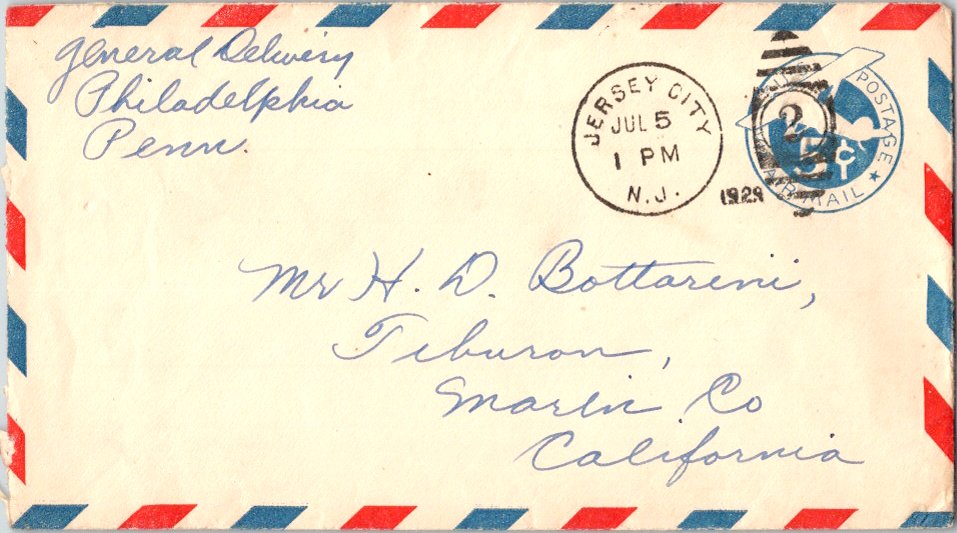 General Delivery
Philadelphia
Penn.
JERSEY CITY
JUL 5
1 PM
N.J.
1929
POSTAGE
5¢
AIR MAIL
2
Mr H. D. Bottareni,
Tiburon,
Marin Co
California